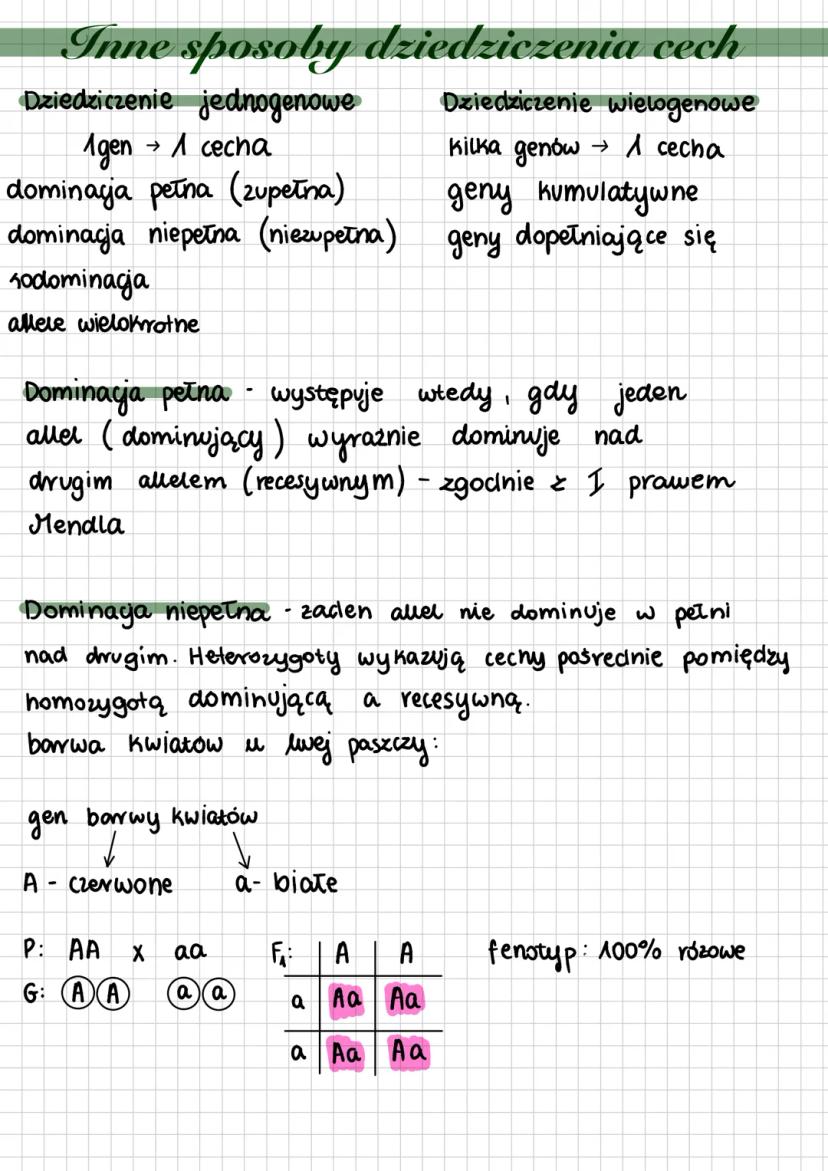 Inne sposoby dziedziczenia cech
Dziedziczenie jednogenowe
1gen → 1 cecha
dominacja pełna (zupełna)
dominacja niepełna (niezupełna)
kodominacja
allele wielokrotne
Dziedziczenie wielogenowe
kilka genów → 1 cecha
geny kumulatywne
geny dopełniające się
Dominacja pełna - występuje wtedy, gdy jeden
allel (dominujący) wyraźnie dominuje nad
drugim allelem (recesywnym) - zgodnie z I prawem
Mendla
Dominacja niepełna - żaden allel nie dominuje w pełni
nad drugim. Heterozygoty wykazują cechy pośrednie pomiędzy
homozygotą dominującą a recesywną.
barwa kwiatów u lwej paszczy:
gen barwy kwiatów
A - czerwone a- białe
P: AA x aa F₁: A A fenotyp: 100% różowe
G: A A a a a Aa Aa
a Aa Aa